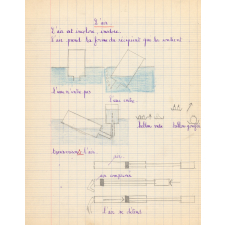 L'air
L'air est incolore, inodore.
L'air prend la forme du récipient qui le contient
L'eau n'entre pas
L'eau entre
ballon vide ballon gonflé
Expérience L'air
air
air comprimé
L'air se détend